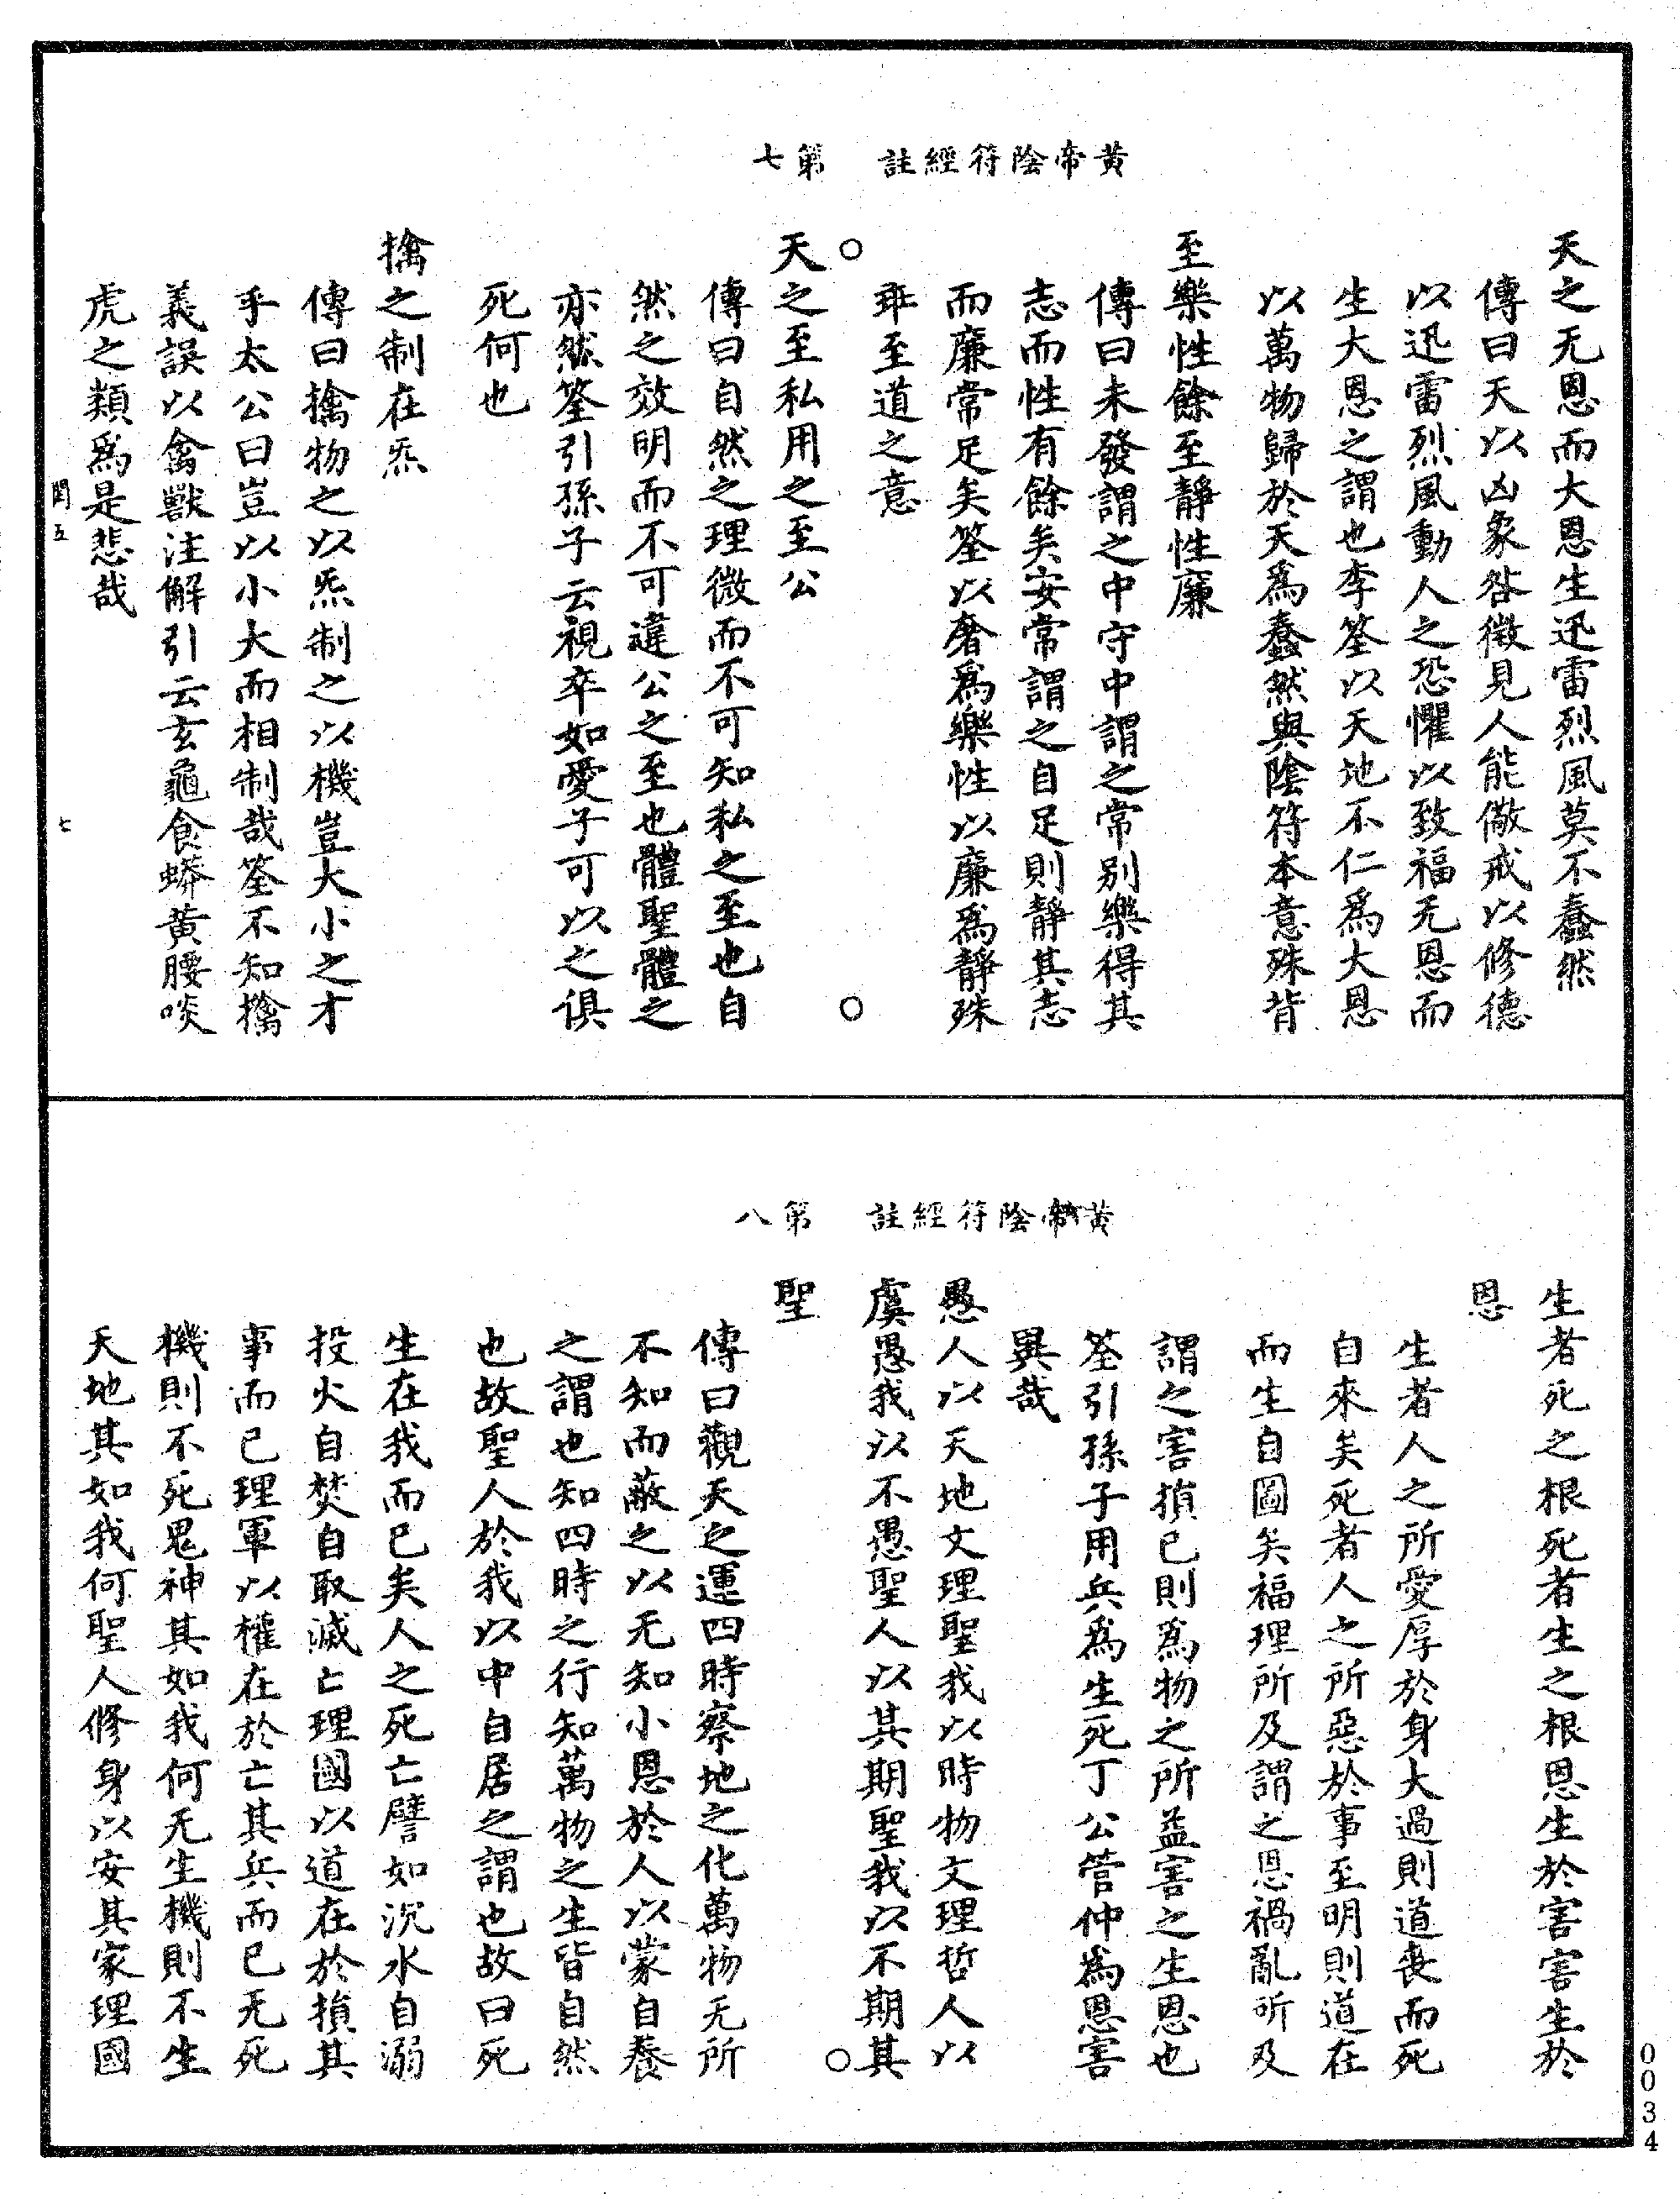 黄帝陰符經註　第七
天之无恩而大恩生迅雷烈風莫不蠢然
傳曰天以凶象咎徵見人能儆戒以修德
以迅雷烈風動人之恐懼以致福无恩而
生大恩之謂也李筌以天地不仁爲大恩
以萬物歸於天爲蠢然與陰符本意殊背
至樂性餘至靜性廉
傳曰未發謂之中守中謂之常别樂得其
志而性有餘矣安常謂之自足則靜其志
而廉常足矣筌以奢爲樂性以廉爲靜殊
乖至道之意
○　○
天之至私用之至公
傳曰自然之理微而不可知私之至也自
然之效明而不可違公之至也體聖體之
亦然筌引孫子云視卒如愛子可以之俱
死何也
擒之制在炁
傳曰擒物之以炁制之以機豈大小之才
乎太公曰豈以小大而相制哉筌不知擒
義誤以禽獸注解引云玄龜食蟒黄腰啖
虎之類爲是悲哉
閏五　七
黄帝陰符經註　第八
生者死之根死者生之根恩生於害害生於
恩
生者人之所愛厚於身大過則道喪而死
自來矣死者人之所惡於事至明則道在
而生自圖矣福理所及謂之恩禍亂所及
謂之害損己則爲物之所益害之生恩也
筌引孫子用兵爲生死丁公管仲爲恩害
異哉
愚人以天地文理聖我以時物文理哲人以
虞愚我以不愚聖人以其期聖我以不期其
聖
○
傳曰觀天之運四時察地之化萬物无所
不知而蔽之以无知小恩於人以蒙自養
之謂也知四時之行知萬物之生皆自然
也故聖人於我以中自居之謂也故曰死
生在我而已矣人之死亡譬如沉水自溺
投火自焚自取滅亡理國以道在於損其
事而已理軍以權在於亡其兵而已无死
機則不死鬼神其如我何无生機則不生
天地其如我何聖人修身以安其家理國
0034